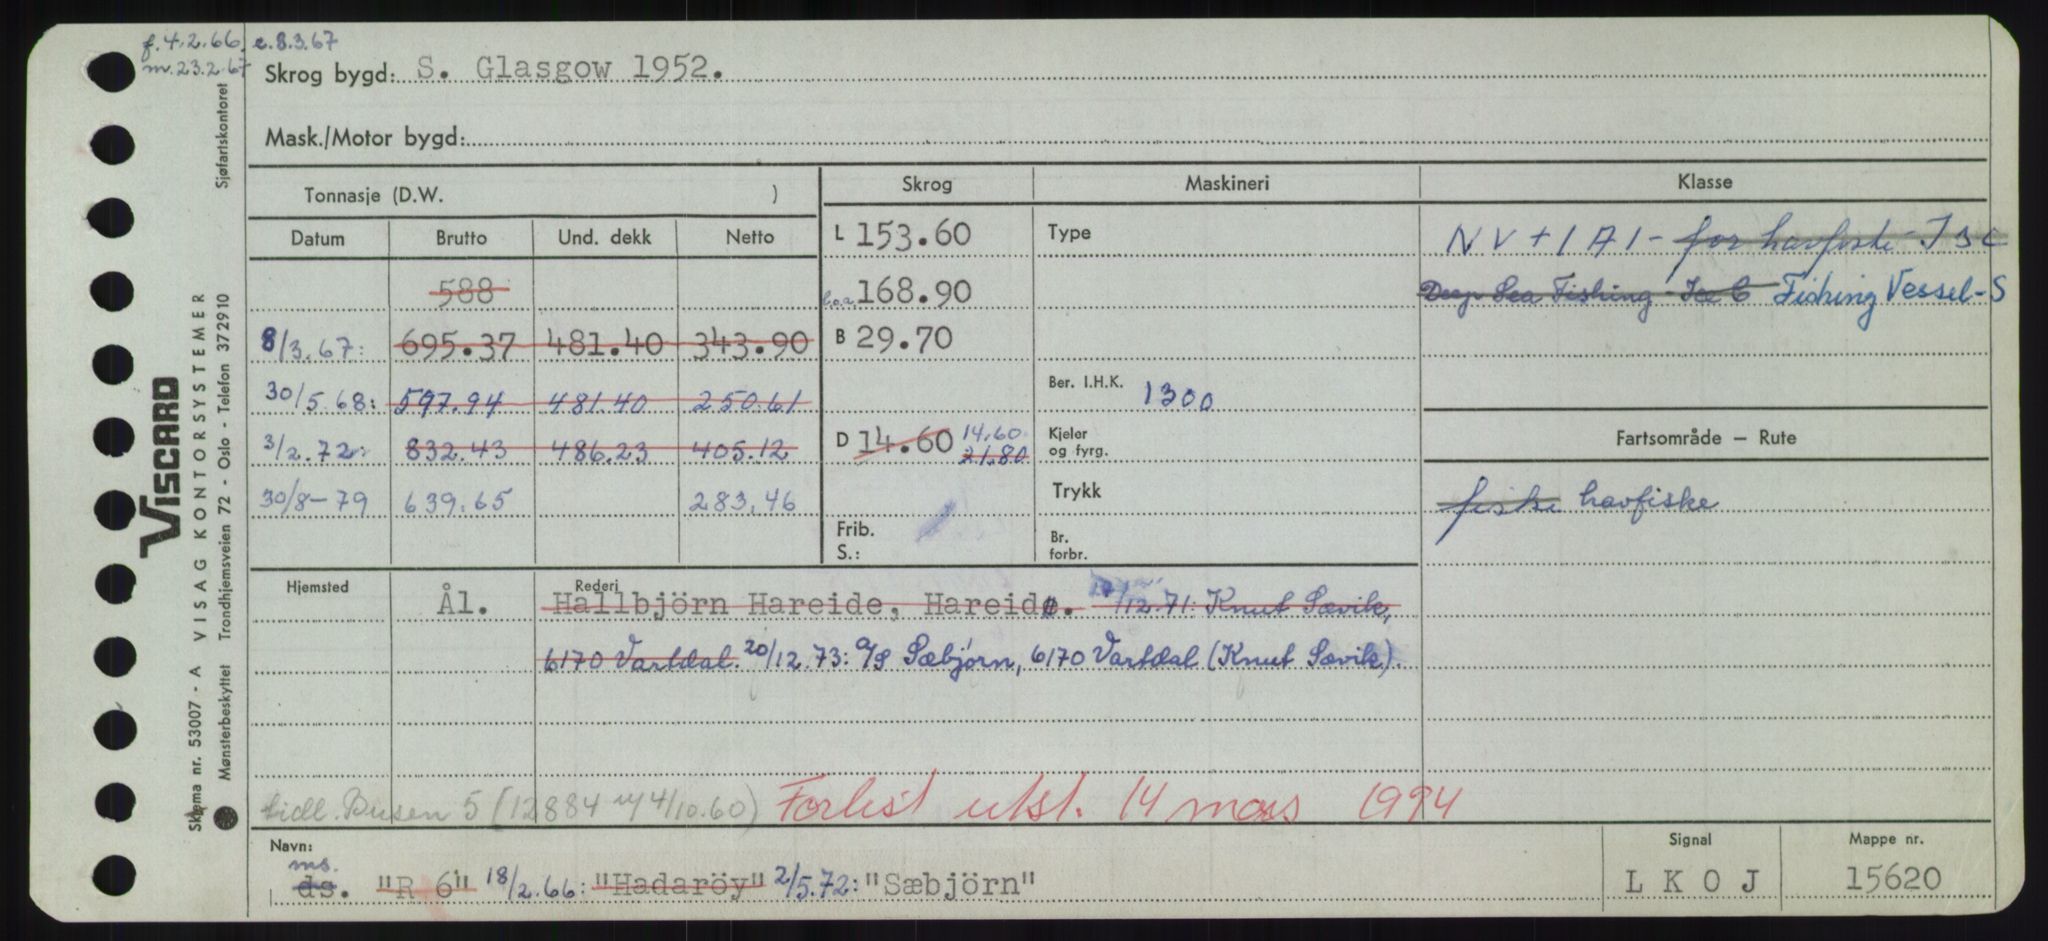 f. 4.2.66. e.8.3.67
m. 23.2.67
Skrog bygd: S. Glasgow 1952.
Mask./Motor bygd:
Tonnasje (D.W. )
Skrog Maskineri Klasse
Datum Brutto Und. dekk Netto
L 153.60 Type NV+1A1- for havfiske- I3C
588 l.o.a. 168.90 Deep Sea Fishing-Ice C Fishing Vessel-S
8/3.67: 695.37 481.40 343.90 B 29.70
30/5.68: 597.94 481.40 250.61 Ber. I.H.K. 1300
3/2.72: 832.43 486.23 405.12 D 14.60 14.60 21.80 Kjeler og fyrg. Fartsområde – Rute
30/8-79 639.65 283,46 Trykk fiske havfiske
Frib. S.: Br. forbr.
Hjemsted Ål. Rederi Hallbjörn Hareide, Hareide. /12.71: Knut Sævik,
6170 Vartdal. 20/12.73: A/S Sæbjørn, 6170 Vartdal (Knut Sævik).
tidl. Busen 5 (12884 4/10.60) Forlist utsl. 14 mars 1994
Navn: Signal Mappe nr.
ms.
ds. "R 6" 18/2.66: "Hadaröy" 2/5.72: "Sæbjörn" L K O J 15620
Sjøfartskontoret
VISCARD
VISAG KONTORSYSTEMER
Skjema nr. 53007 - A
Mønsterbeskyttet Trondhjemsveien 72 - Oslo - Telefon 372910